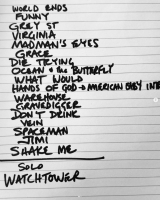 WORLD ENDS
FUNNY
GREY ST
VIRGINIA
MADMAN'S EYES
GRACE
DIE TRYING
OCEAN & the BUTTERFLY
WHAT WOULD
HANDS OF GOD → AMERICAN BABY INT
WAREHOUSE
GRAVEDIGGER
DON'T DRINK
VEIN
SPACEMAN
JIMI
SHAKE ME
SOLO
WATCHTOWER